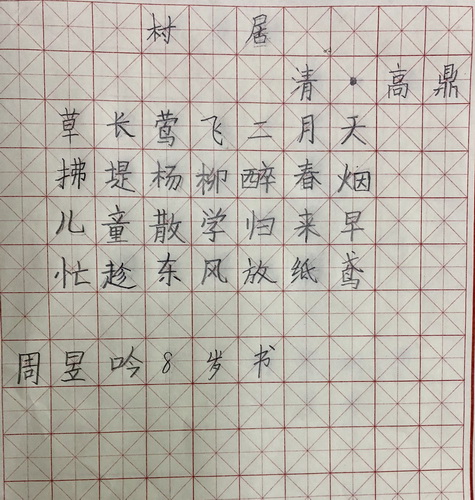 村居
清·高鼎
草长莺飞二月天
拂堤杨柳醉春烟
儿童散学归来早
忙趁东风放纸鸢
周昱吟8岁书